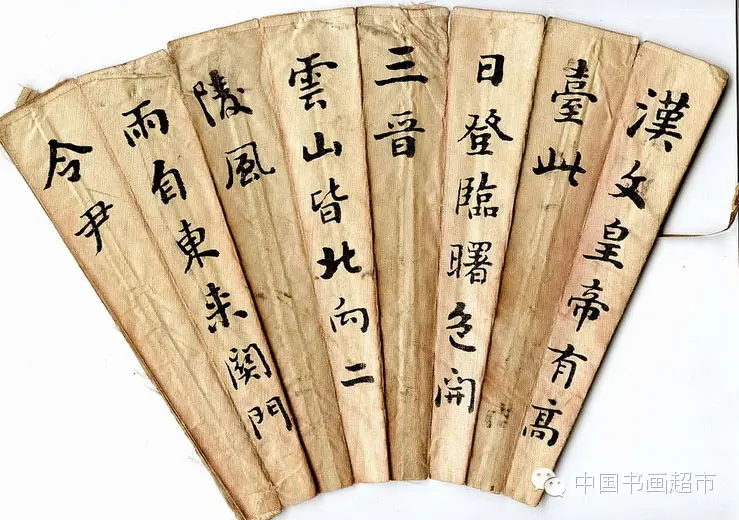 漢文皇帝有高
臺此
日登臨曙色開
三晋
雲山皆北向二
陵風
雨自東来關門
令尹
中国书画超市